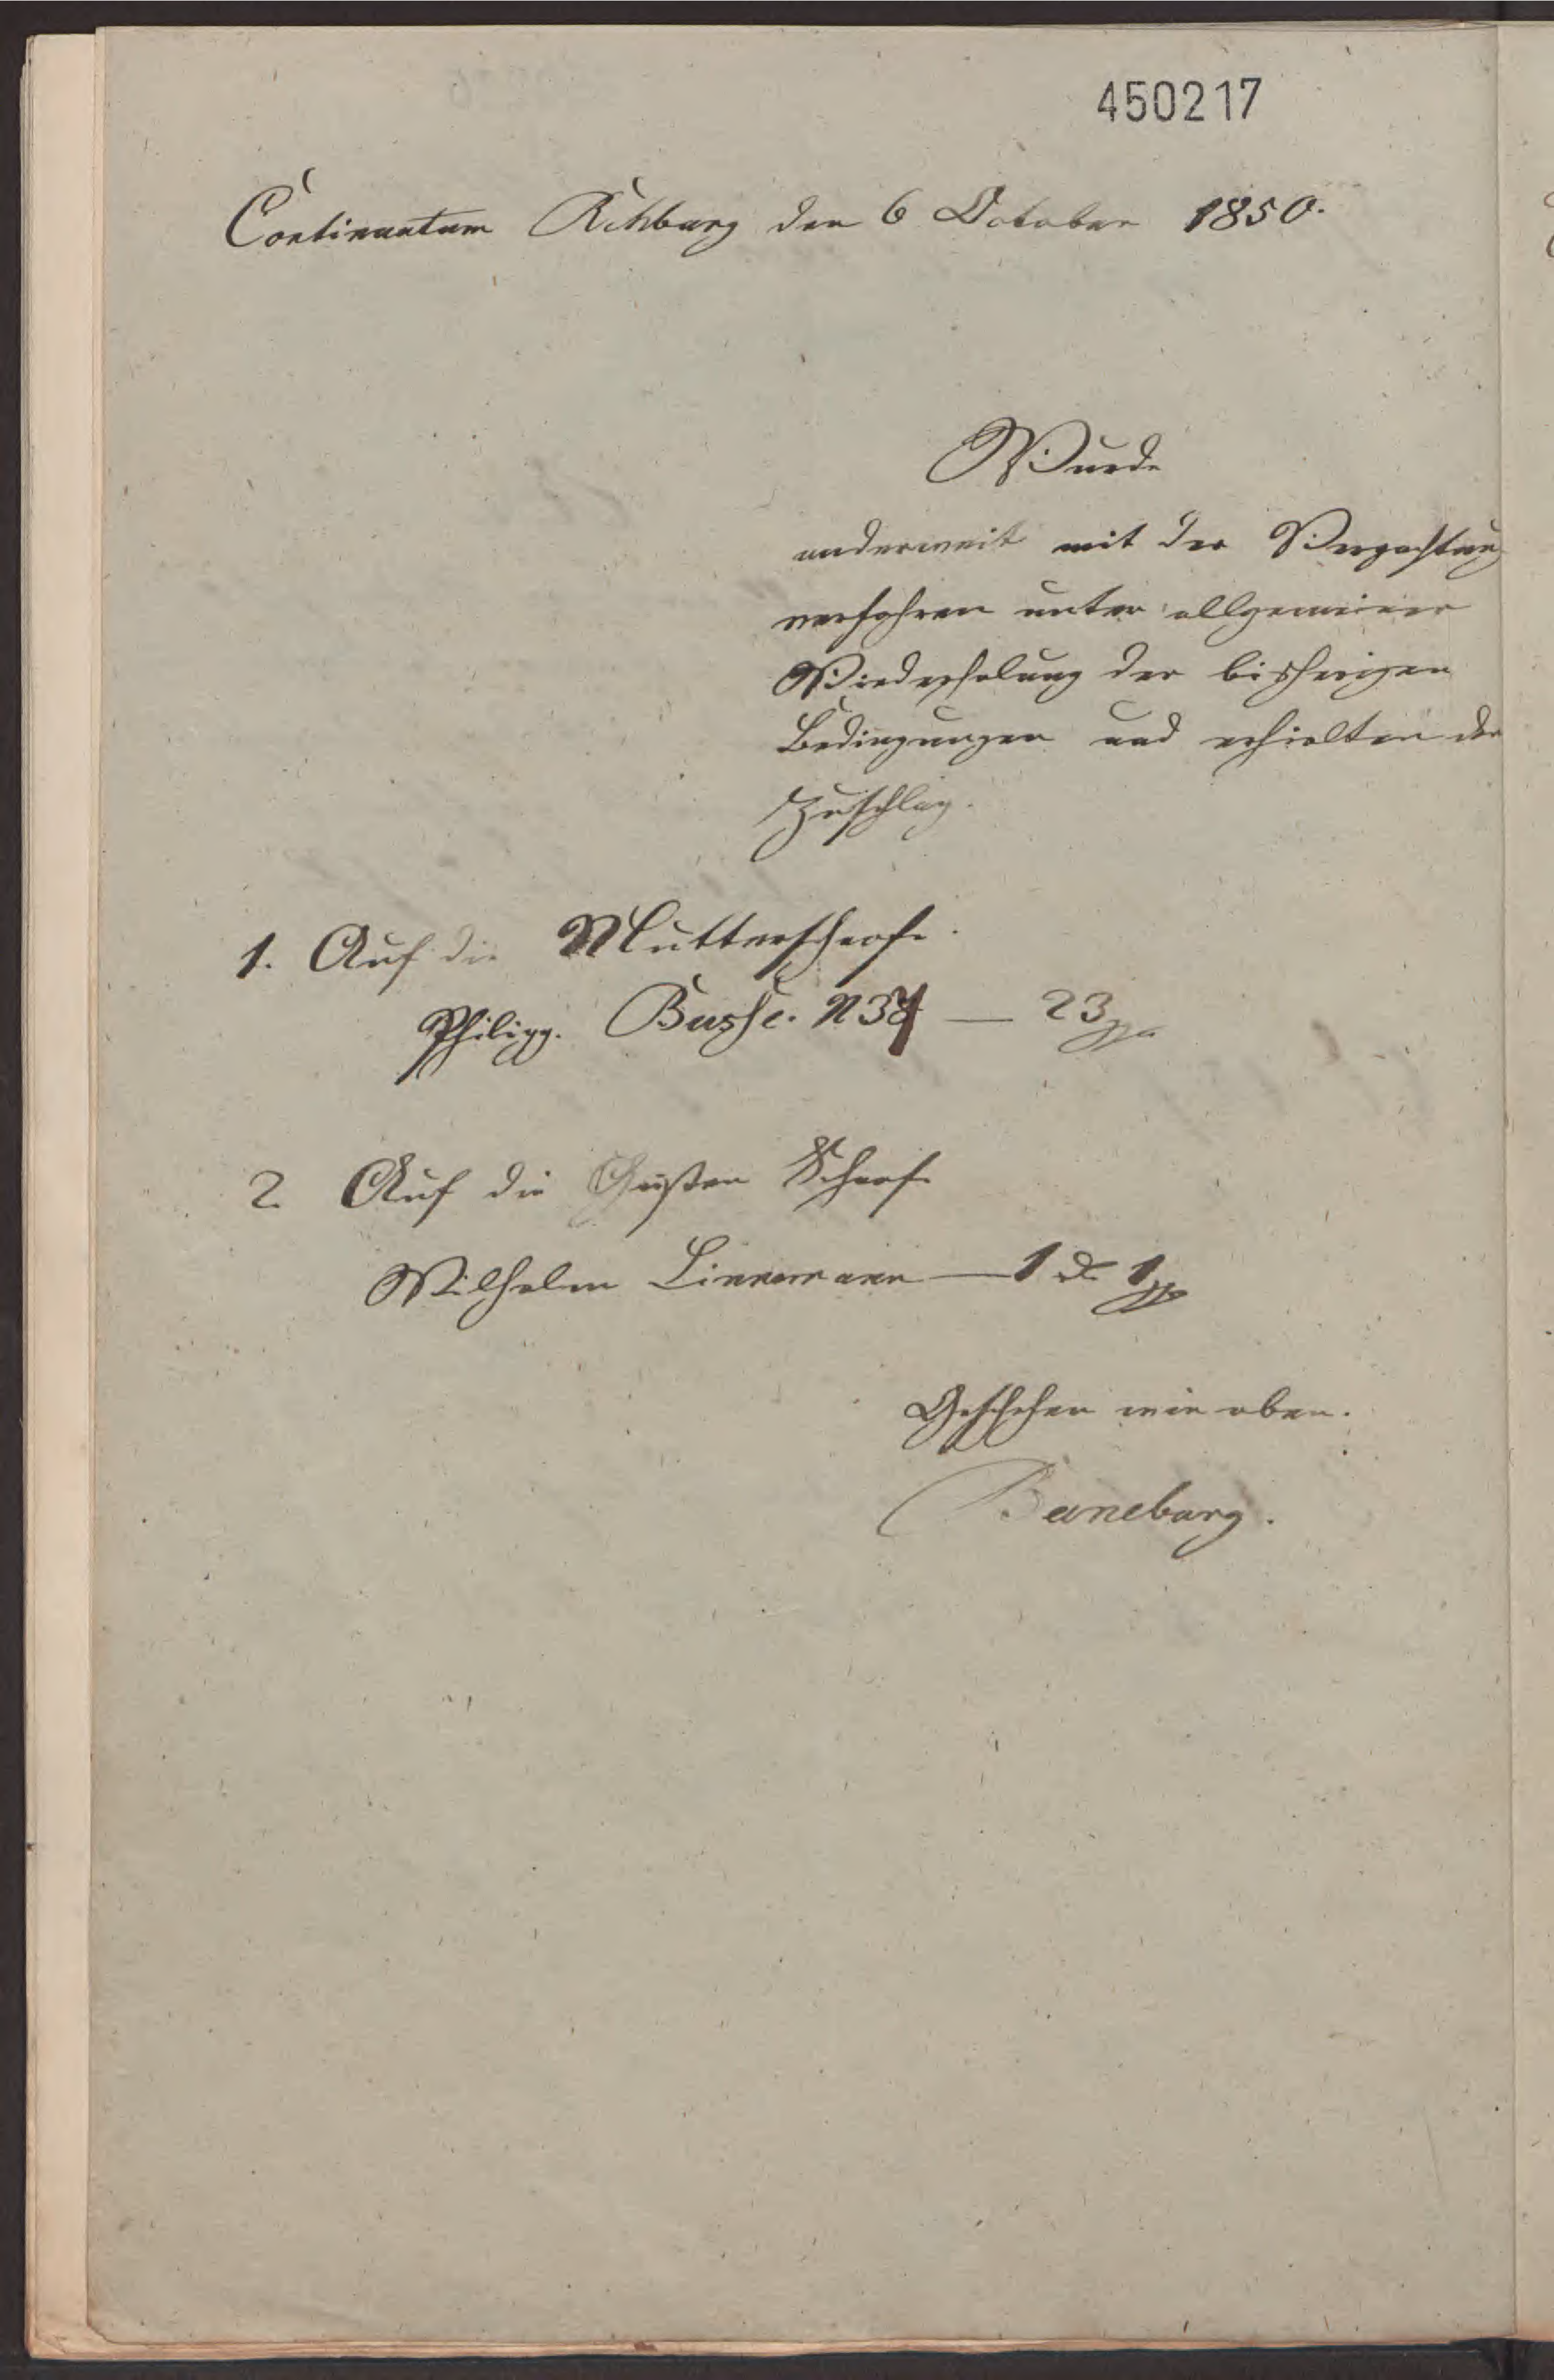 450217
Continuatum Rehburg den 6 October 1850.
Wurde
anderweit mit der Verpachtung
verfahren unter allgemeiner
Wiederholung der bisherigen
Bedingungen und erhielten den
Zuschlag.
1. Auf die Mutterschafe.
Philipp. Busse. N 37 — 23 gg
2. Auf die Güsten Schafe
Wilhelm Linnemann — 1 rt 1 gg
Geschehen wie oben.
Baneburg.